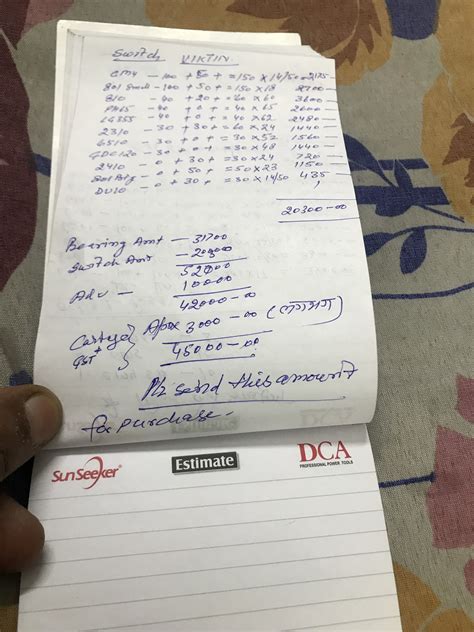 Switch VIKTIN
CM4 - 100 + 50 + = 150 × 14/50 - 2175 -
801 Small - 100 + 50 + = 150 × 18 2700 -
810 - 40 + 20 + = 60 × 60 3600 -
- 40 + 0 + = 40 × 65 2600 -
LG355 - 40 + 0 + = 40 × 62 2480 -
2310 - 30 + 30 + = 60 × 24 1440 -
6510 - 30 + 0 + = 30 × 52 1560 -
- 30 + 0 + = 30 × 48 1440 -
2410 - 0 + 30 + = 30 × 24 720 -
- 0 + 50 + = 50 × 23 1150 -
DU10 - 0 + 30 + = 30 × 14/50 435
20300-00
Bearing Amt - 31700
Switch Amt - 20300
52000
Adv - 10000
42000-00
Cartage + GST } Apox 3000-00 (लगभग)
45000-00
Plz send this amount
for purchase.
SunSeeker® Estimate DCA
PROFESSIONAL POWER TOOLS